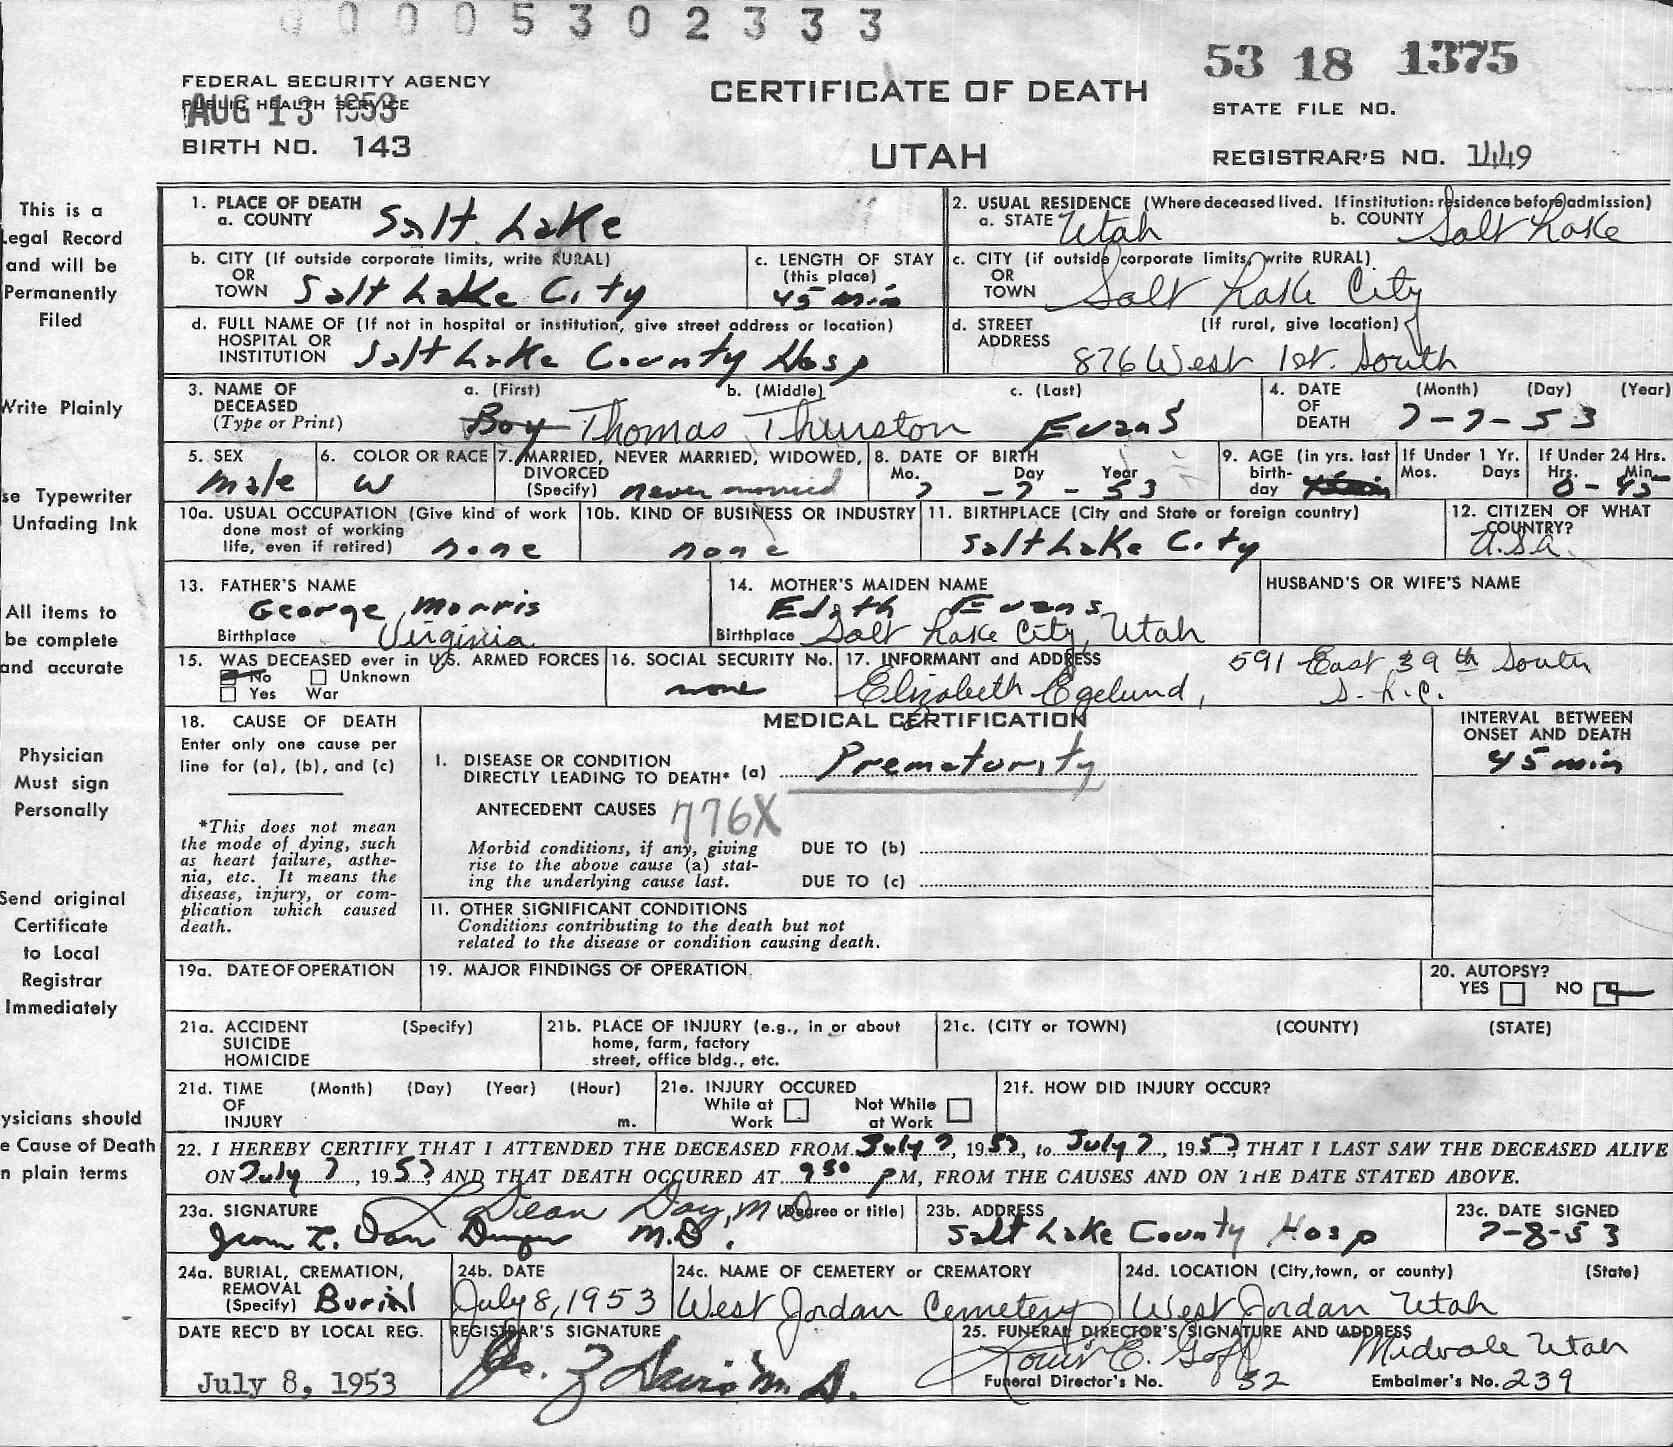 0 0 0 0 5 3 0 2 3 3 3
53 18 1375
FEDERAL SECURITY AGENCY
PUBLIC HEALTH SERVICE
AUG 13 1953
BIRTH NO. 143
CERTIFICATE OF DEATH
UTAH
STATE FILE NO.
REGISTRAR'S NO. 1449
This is a
Legal Record
and will be
Permanently
Filed
Write Plainly
se Typewriter
Unfading Ink
All items to
be complete
and accurate
Physician
Must sign
Personally
Send original
Certificate
to Local
Registrar
Immediately
ysicians should
e Cause of Death
n plain terms
1. PLACE OF DEATH
a. COUNTY Salt Lake
2. USUAL RESIDENCE (Where deceased lived. If institution: residence before admission)
a. STATE Utah b. COUNTY Salt Lake
b. CITY (If outside corporate limits, write RURAL)
OR
TOWN Salt Lake City
c. LENGTH OF STAY
(this place)
45 min
c. CITY (if outside corporate limits, write RURAL)
OR
TOWN Salt Lake City
d. FULL NAME OF (If not in hospital or institution, give street address or location)
HOSPITAL OR
INSTITUTION Salt Lake County Hosp
d. STREET (If rural, give location)
ADDRESS
876 West 1st. South
3. NAME OF
DECEASED
(Type or Print)
a. (First) b. (Middle) c. (Last)
Boy Thomas Thurston Evans
4. DATE (Month) (Day) (Year)
OF
DEATH 7-7-53
5. SEX
male
6. COLOR OR RACE
W
7. MARRIED, NEVER MARRIED, WIDOWED,
DIVORCED
(Specify) never married
8. DATE OF BIRTH
Mo. Day Year
7 - 7 - 53
9. AGE (in yrs. last
birth-
day
If Under 1 Yr.
Mos. Days
If Under 24 Hrs.
Hrs. Min.
0 - 45
10a. USUAL OCCUPATION (Give kind of work
done most of working
life, even if retired) none
10b. KIND OF BUSINESS OR INDUSTRY
none
11. BIRTHPLACE (City and State or foreign country)
Salt Lake City
12. CITIZEN OF WHAT
COUNTRY?
U.S.A.
13. FATHER'S NAME
George Morris
Birthplace Virginia
14. MOTHER'S MAIDEN NAME
Edith Evans
Birthplace Salt Lake City, Utah
HUSBAND'S OR WIFE'S NAME
15. WAS DECEASED ever in U.S. ARMED FORCES
No Unknown
Yes War
16. SOCIAL SECURITY No.
none
17. INFORMANT and ADDRESS 591 East 39th South
Elizabeth Egelund, S.L.C.
18. CAUSE OF DEATH
Enter only one cause per
line for (a), (b), and (c)
*This does not mean
the mode of dying, such
as heart failure, asthe-
nia, etc. It means the
disease, injury, or com-
plication which caused
death.
MEDICAL CERTIFICATION
INTERVAL BETWEEN
ONSET AND DEATH
45 min
I. DISEASE OR CONDITION
DIRECTLY LEADING TO DEATH* (a) Prematurity
ANTECEDENT CAUSES 776X
Morbid conditions, if any, giving
rise to the above cause (a) stat-
ing the underlying cause last.
DUE TO (b)
DUE TO (c)
11. OTHER SIGNIFICANT CONDITIONS
Conditions contributing to the death but not
related to the disease or condition causing death.
19a. DATE OF OPERATION
19. MAJOR FINDINGS OF OPERATION
20. AUTOPSY?
YES NO
21a. ACCIDENT (Specify)
SUICIDE
HOMICIDE
21b. PLACE OF INJURY (e.g., in or about
home, farm, factory
street, office bldg., etc.
21c. (CITY or TOWN) (COUNTY) (STATE)
21d. TIME (Month) (Day) (Year) (Hour)
OF
INJURY m.
21e. INJURY OCCURED
While at Work Not While at Work
21f. HOW DID INJURY OCCUR?
22. I HEREBY CERTIFY THAT I ATTENDED THE DECEASED FROM July 7, 1953, to July 7, 1953 THAT I LAST SAW THE DECEASED ALIVE
ON July 7, 1953 AND THAT DEATH OCCURED AT 9 30 P M, FROM THE CAUSES AND ON THE DATE STATED ABOVE.
23a. SIGNATURE (Degree or title)
Dean Day, M.D.
M.D.
23b. ADDRESS
Salt Lake County Hosp
23c. DATE SIGNED
7-8-53
24a. BURIAL, CREMATION,
REMOVAL
(Specify) Burial
24b. DATE
July 8, 1953
24c. NAME OF CEMETERY or CREMATORY
West Jordan Cemetery
24d. LOCATION (City, town, or county) (State)
West Jordan Utah
DATE REC'D BY LOCAL REG.
July 8, 1953
REGISTRAR'S SIGNATURE
Davis M.D.
25. FUNERAL DIRECTOR'S SIGNATURE AND ADDRESS
Louis E. Goff Midvale Utah
Funeral Director's No. 52 Embalmer's No. 239